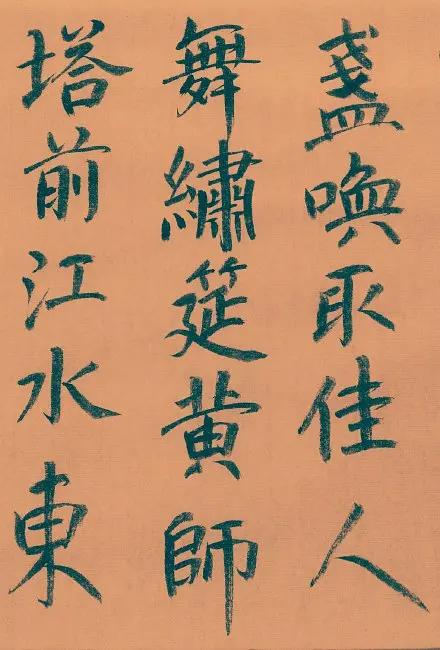 盏喚取佳人
舞繡筵黄師
塔前江水東